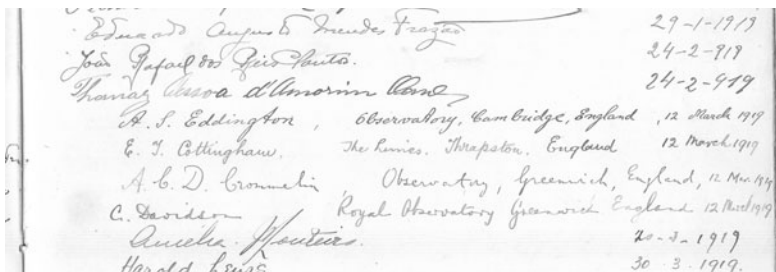 Eduardo Augusto Mendes Frazão 29-1-1919
João Rafael dos Reis Santos. 24-2-919
Thomaz d'Amorim 24-2-919
A. S. Eddington, Observatory, Cambridge, England, 12 March 1919
E. T. Cottingham. The Limes. Thrapston. England 12 March 1919
A. C. D. Crommelin Observatory, Greenwich, England, 12 Mar. 1919
C. Davidson Royal Observatory Greenwich England 12 March 1919
Amelia Monteiro. 20-3-1919
Harold 30.3.1919.